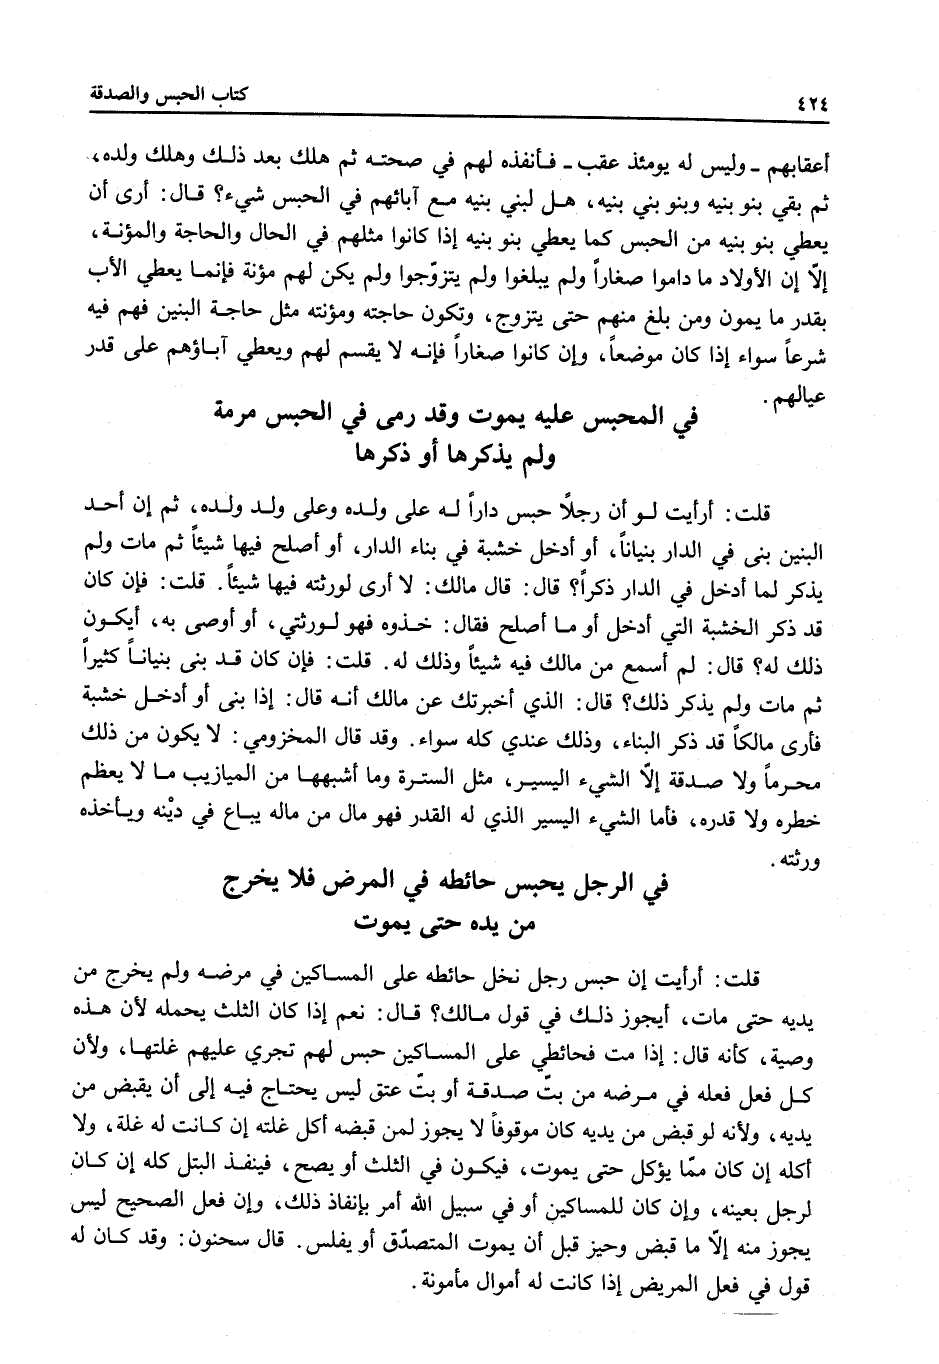 ٤٢٤
كتاب الحبس والصدقة
أعقابهم ـ وليس له يومئذ عقب ـ فأنفذه لهم في صحته ثم هلك بعد ذلك وهلك ولده،
ثم بقي بنو بنيه وبنو بني بنيه، هل لبني بنيه مع آبائهم في الحبس شيء؟ قال: أرى أن
يعطي بنو بنيه من الحبس كما يعطي بنو بنيه إذا كانوا مثلهم في الحال والحاجة والمؤنة،
إلاّ إن الأولاد ما داموا صغاراً ولم يبلغوا ولم يتزوّجوا ولم يكن لهم مؤنة فإنما يعطي الأب
بقدر ما يمون ومن بلغ منهم حتى يتزوج، وتكون حاجته ومؤنته مثل حاجة البنين فهم فيه
شرعاً سواء إذا كان موضعاً، وإن كانوا صغاراً فإنه لا يقسم لهم ويعطي آباؤهم على قدر
عيالهم.
في المحبس عليه يموت وقد رمى في الحبس مرمة
ولم يذكرها أو ذكرها
قلت: أرأيت لو أن رجلاً حبس داراً له على ولده وعلى ولد ولده، ثم إن أحد
البنين بنى في الدار بنياناً، أو أدخل خشبة في بناء الدار، أو أصلح فيها شيئاً ثم مات ولم
يذكر لما أدخل في الدار ذكراً؟ قال: قال مالك: لا أرى لورثته فيها شيئاً. قلت: فإن كان
قد ذكر الخشبة التي أدخل أو ما أصلح فقال: خذوه فهو لورثتي، أو أوصى به، أيكون
ذلك له؟ قال: لم أسمع من مالك فيه شيئاً وذلك له. قلت: فإن كان قد بنى بنياناً كثيراً
ثم مات ولم يذكر ذلك؟ قال: الذي أخبرتك عن مالك أنه قال: إذا بنى أو أدخل خشبة
فأرى مالكاً قد ذكر البناء، وذلك عندي كله سواء. وقد قال المخزومي: لا يكون من ذلك
محرماً ولا صدقة إلاّ الشيء اليسير، مثل السترة وما أشبهها من الميازيب ما لا يعظم
خطره ولا قدره، فأما الشيء اليسير الذي له القدر فهو مال من ماله يباع في ديْنه ويأخذه
ورثته.
في الرجل يحبس حائطه في المرض فلا يخرج
من يده حتى يموت
قلت: أرأيت إن حبس رجل نخل حائطه على المساكين في مرضه ولم يخرج من
يديه حتى مات، أيجوز ذلك في قول مالك؟ قال: نعم إذا كان الثلث يحمله لأن هذه
وصية، كأنه قال: إذا مت فحائطي على المساكين حبس لهم تجري عليهم غلتها، ولأن
كل فعل فعله في مرضه من بتّ صدقة أو بتّ عتق ليس يحتاج فيه إلى أن يقبض من
يديه، ولأنه لو قبض من يديه كان موقوفاً لا يجوز لمن قبضه أكل غلته إن كانت له غلة، ولا
أكله إن كان ممّا يؤكل حتى يموت، فيكون في الثلث أو يصح، فينفذ البتل كله إن كان
لرجل بعينه، وإن كان للمساكين أو في سبيل الله أمر بإنفاذ ذلك، وإن فعل الصحيح ليس
يجوز منه إلاّ ما قبض وحيز قبل أن يموت المتصدّق أو يفلس. قال سحنون: وقد كان له
قول في فعل المريض إذا كانت له أموال مأمونة.